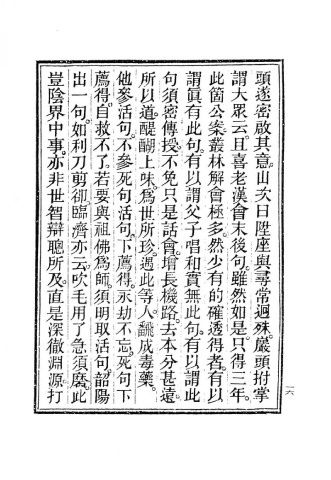 頭遂密啟其意。山次日陞座。與尋常迥殊。巖頭拊掌
謂大眾云。且喜老漢會末後句。雖然如是。只得三年。
此箇公案。叢林解會極多。然少有的確透得者。有以
謂眞有此句。有以謂父子唱和。實無此句。有以謂此
句須密傳授。不免只是話會。增長機路。去本分甚遠。
所以道。醍醐上味。爲世所珍。遇此等人。翻成毒藥。
他參活句。不參死句。活句下薦得。永劫不忘。死句下
薦得。自救不了。若要與祖佛爲師。須明取活句。韶陽
出一句。如利刀剪卻。臨濟亦云。吹毛用了急須磨。此
豈陰界中事。亦非世智辯聰所及。直是深徹淵源。打
一六